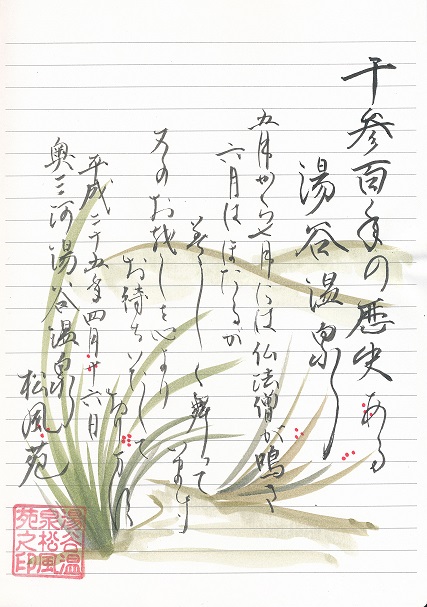 千参百年の歴史ある
湯谷温泉
五月から七月には仏法僧が鳴き
六月はほたるが
美しく舞って
います
又のお越しを心より
お待ちいたして
おります
平成二十五年四月廿六日
奥三河湯谷温泉
松風苑
湯谷温
泉松風
苑之印